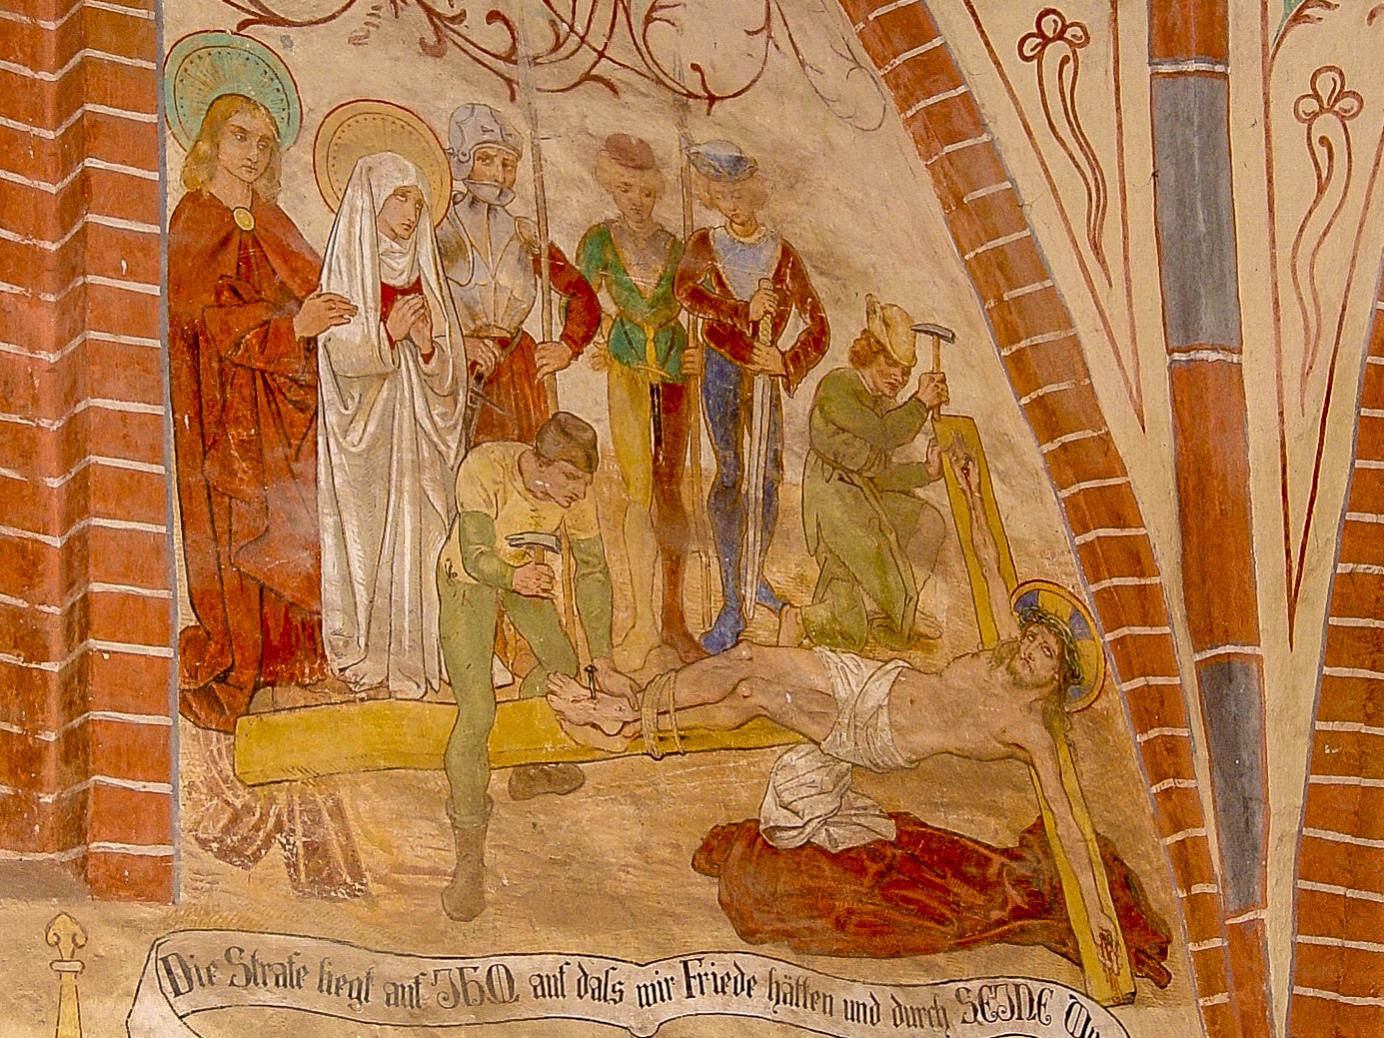 Die Strafe liegt auf IHM auf dass wir Friede hätten und durch SEINE